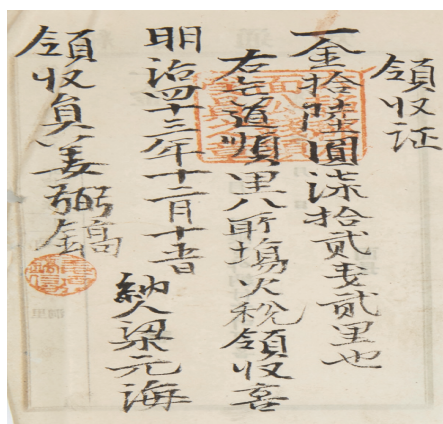 領收证
一金拾陸圓柒拾貳戔貳里也
右 道順里八所塲火稅領收喜
明治四十三年十二月十五日
納人梁元海
領收員 姜弼鎬